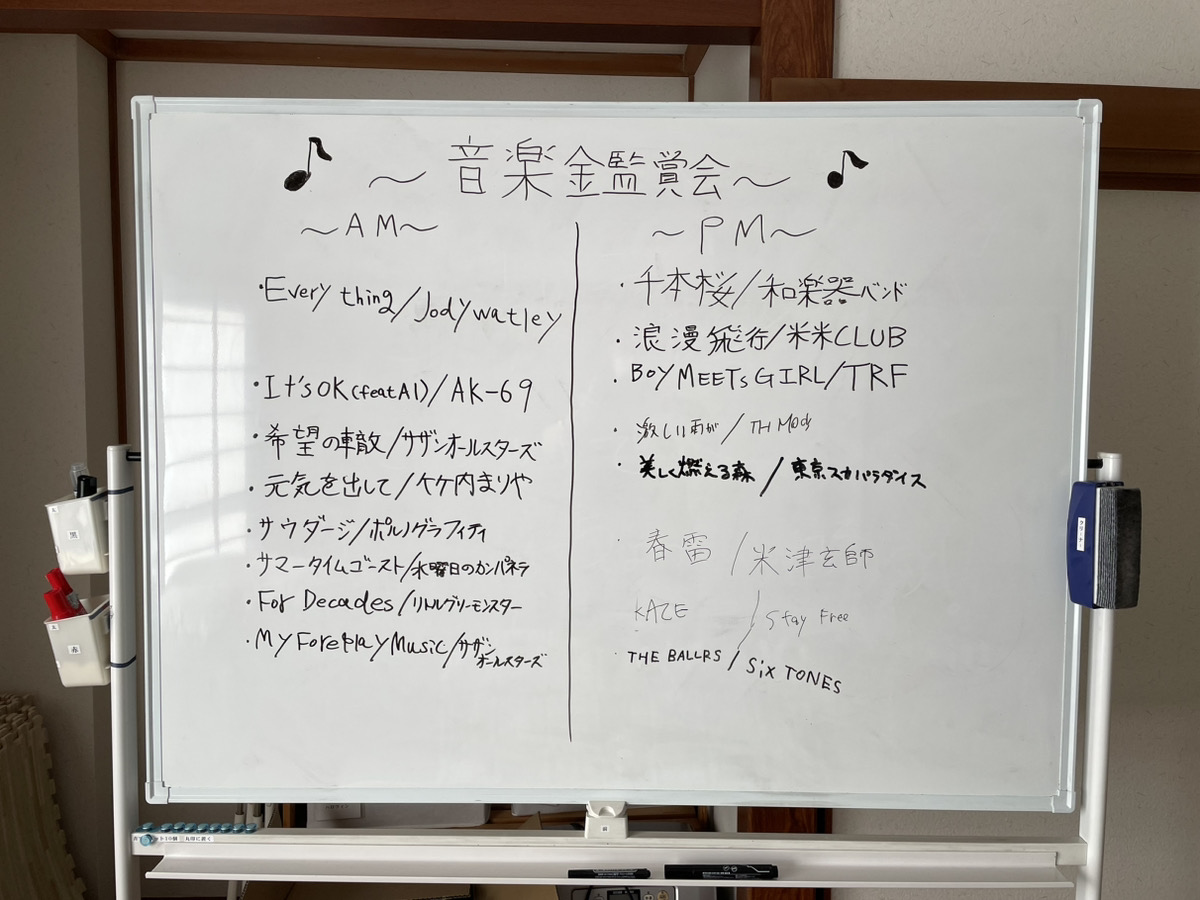 ～音楽金監賞会～
～AM～
・Every thing/Jody watley
・It's OK(feat AI)/AK-69
・希望の轍/サザンオールスターズ
・元気を出して/竹内まりや
・サウダージ/ポルノグラフィティ
・サマータイムゴースト/水曜日のカンパネラ
・For Decades/リトルグリーモンスター
・My Foreplay Music/サザン
オールスターズ
～PM～
・千本桜/和楽器バンド
・浪漫飛行/米米CLUB
・BOY MEETs GIRL/TRF
・激しい雨が/TH MOds
・美しく燃える森/東京スカパラダイス
・春雷/米津玄師
KAZE/Stay Free
・THE BALLRS/Six TONES
黒
赤
クリーナー